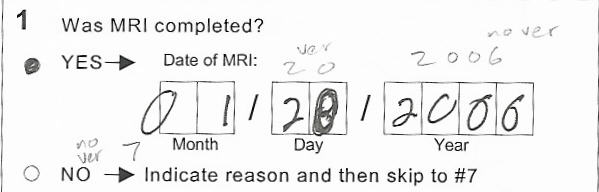 1 Was MRI completed?
no ver
ver
YES → Date of MRI: 20 2006
01 / 20 / 2006
Month Day Year
no
ver 7
NO → Indicate reason and then skip to #7